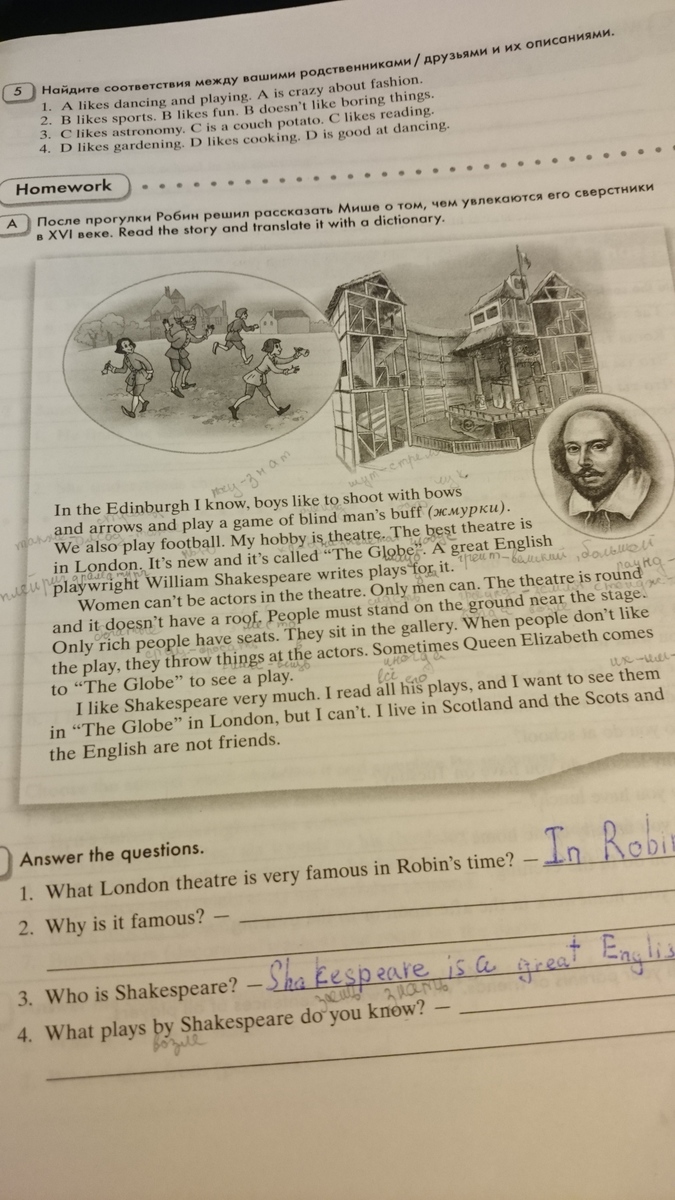 5 Найдите соответствия между вашими родственниками / друзьями и их описаниями.
1. A likes dancing and playing. A is crazy about fashion.
2. B likes sports. B likes fun. B doesn't like boring things.
3. C likes astronomy. C is a couch potato. C likes reading.
4. D likes gardening. D likes cooking. D is good at dancing.
Homework
A После прогулки Робин решил рассказать Мише о том, чем увлекаются его сверстники
в XVI веке. Read the story and translate it with a dictionary.
In the Edinburgh I know, boys like to shoot with bows
and arrows and play a game of blind man's buff (жмурки).
We also play football. My hobby is theatre. The best theatre is
in London. It's new and it's called "The Globe". A great English
playwright William Shakespeare writes plays for it.
Women can't be actors in the theatre. Only men can. The theatre is round
and it doesn't have a roof. People must stand on the ground near the stage.
Only rich people have seats. They sit in the gallery. When people don't like
the play, they throw things at the actors. Sometimes Queen Elizabeth comes
to "The Globe" to see a play.
иногда
всё его
I like Shakespeare very much. I read all his plays, and I want to see them
in "The Globe" in London, but I can't. I live in Scotland and the Scots and
the English are not friends.
Answer the questions.
1. What London theatre is very famous in Robin's time? – In Robin
2. Why is it famous? –
3. Who is Shakespeare? – Shakespeare is a great Englis
знать
4. What plays by Shakespeare do you know? –
возле